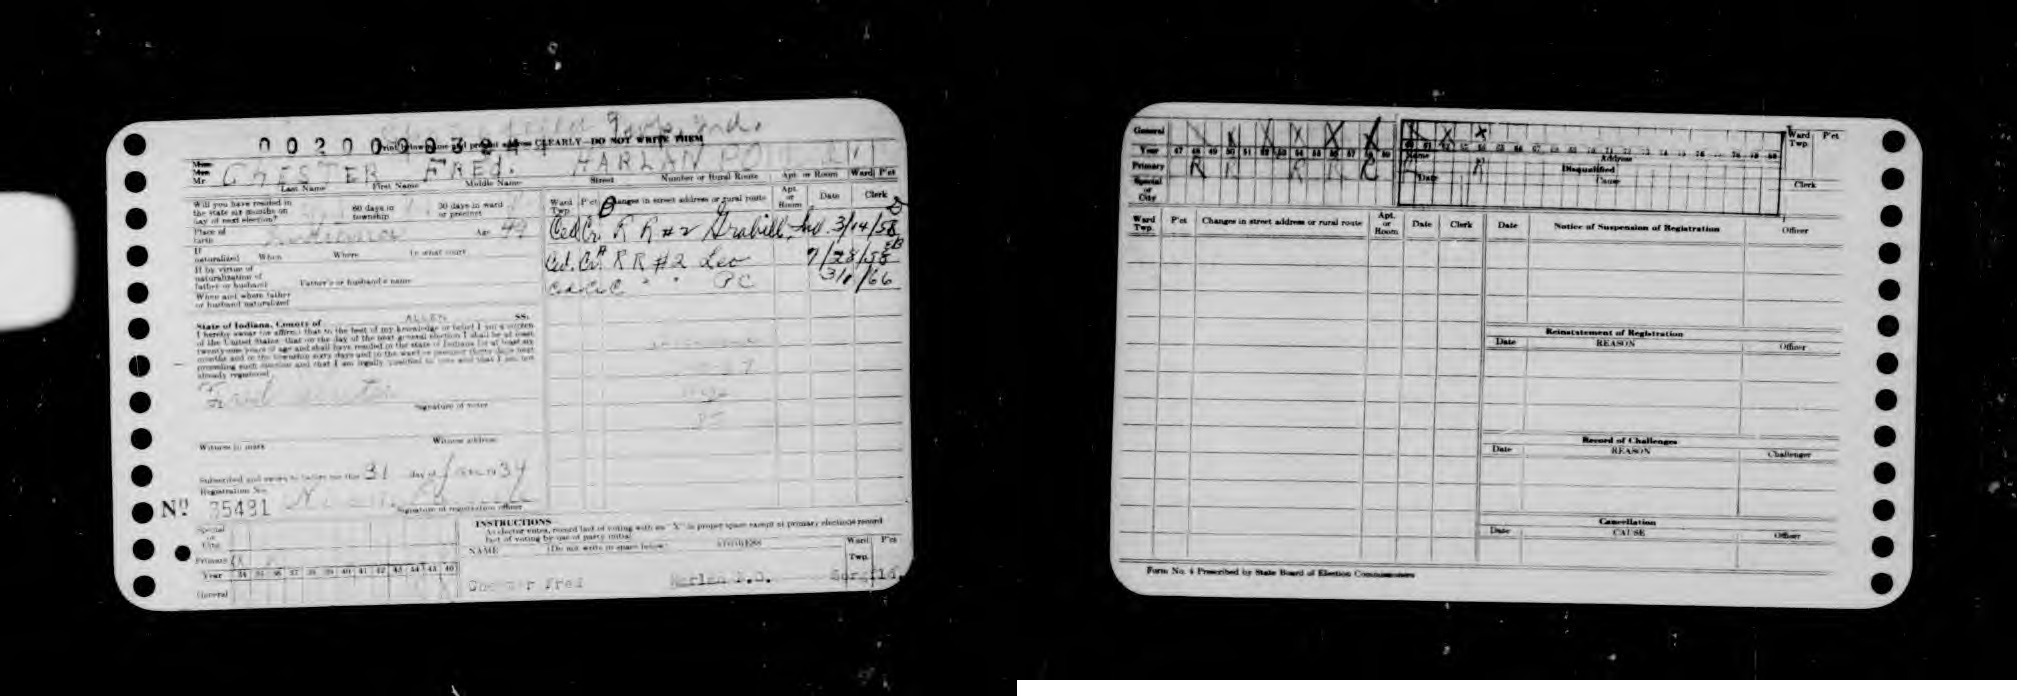 Ind.
0020000384
Print below name and present address CLEARLY—DO NOT WRITE THEM
Miss
Mrs.
Mr. CHESTER FRED. HARLAN PO
Last Name First Name Middle Name Street Number or Rural Route Apt. or Room Ward P'ct
Will you have resided in
the state six months on
day of next election?
60 days in
township
30 days in ward
or precinct
Place of
birth
Age 49
If
naturalized When Where In what court
If by virtue of
naturalization of
father or husband Father's or husband's name
When and where father
or husband naturalized
State of Indiana, County of ALLEN SS.
I hereby swear (or affirm) that to the best of my knowledge or belief I am a citizen
of the United States, that on the day of the next general election I shall be at least
twenty-one years of age and shall have resided in the state of Indiana for at least six
months and in the township sixty days and in the ward or precinct thirty days next
preceding such election and that I am legally qualified to vote and that I am not
already registered
Signature of voter
Witness to mark Witness address
Subscribed and sworn to before me this 31 day of 34
Registration No.
Nº 35481
Signature of registration officer
Ward Twp. P'ct Changes in street address or rural route Apt. or Room Date Clerk
Ced. Cr. R R #2 Grabill, Ind. 3/14/58
Ced. Cr. R R #2 Leo 7/28/58
C " " PC 3/ /66
INSTRUCTIONS
As elector votes, record fact of voting with an "X" in proper space except at primary elections record
fact of voting by use of party initial
NAME (Do not write in space below) ADDRESS Ward Twp. P'ct
Fred Harlan P.O.
Special
or
City
Primary
Year 34 35 36 37 38 39 40 41 42 43 44 45 46
General
General
Year 47 48 49 50 51 52 53 54 55 56 57 58 59
Primary
Special
or
City
Name Address
Date Disqualified
Cause
Ward
Twp. P'ct
Clerk
Ward Twp. P'ct Changes in street address or rural route Apt. or Room Date Clerk
Date Notice of Suspension of Registration Officer
Reinstatement of Registration
Date REASON Officer
Record of Challenges
Date REASON Challenger
Cancellation
Date CAUSE Officer
Form No. 4 Prescribed by State Board of Election Commissioners